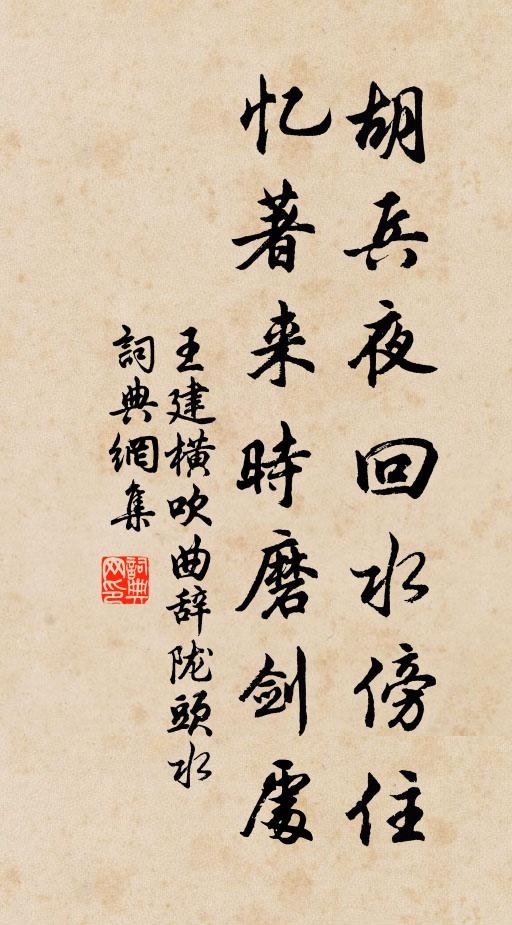 胡兵夜回水傍住
忆著来時磨剑處
王建横吹曲辞陇頭水
詞典網集
詞典网印